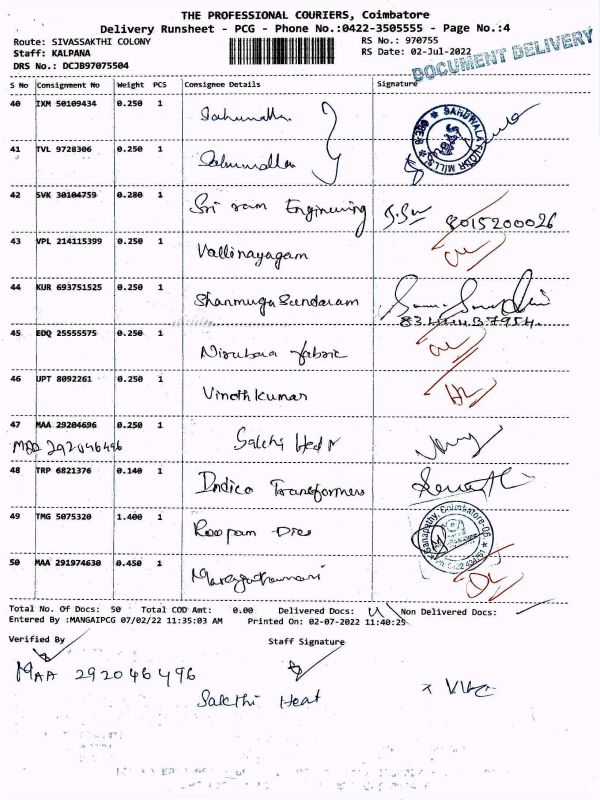 THE PROFESSIONAL COURIERS, Coimbatore
Delivery Runsheet - PCG - Phone No.:0422-3505555 - Page No.:4
Route: SIVASSAKTHI COLONY RS No.: 970755
Staff: KALPANA RS Date: 02-Jul-2022
DRS No.: DCJB97075504
DOCUMENT DELIVERY
S No Consignment No Weight PCS Consignee Details Signature
40 IXM 50109434 0.250 1
SAHUWALA FLOUR MILLS
41 TVL 9728306 0.250 1
42 SVK 30104759 0.280 1 Sri ram Engineering 8015200026
43 VPL 214115399 0.250 1 Vallinayagam
44 KUR 693751525 0.250 1 Shanmuga Sundaram
45 EDQ 25555575 0.250 1 Nirubaa fabric
46 UPT 8092261 0.250 1 Vinothkumar
47 MAA 29204696 0.250 1
MAA 292046496
48 TRP 6821376 0.140 1 Indica Transformers
49 TMG 5075320 1.400 1 Roopam Dies
Ganapathy, Coimbatore-06
50 MAA 291974630 0.450 1
Total No. Of Docs: 50 Total COD Amt: 0.00 Delivered Docs: Non Delivered Docs:
Entered By :MANGAIPCG 07/02/22 11:35:03 AM Printed On: 02-07-2022 11:40:25
Verified By Staff Signature
MAA 292046496
Sakthi Heat